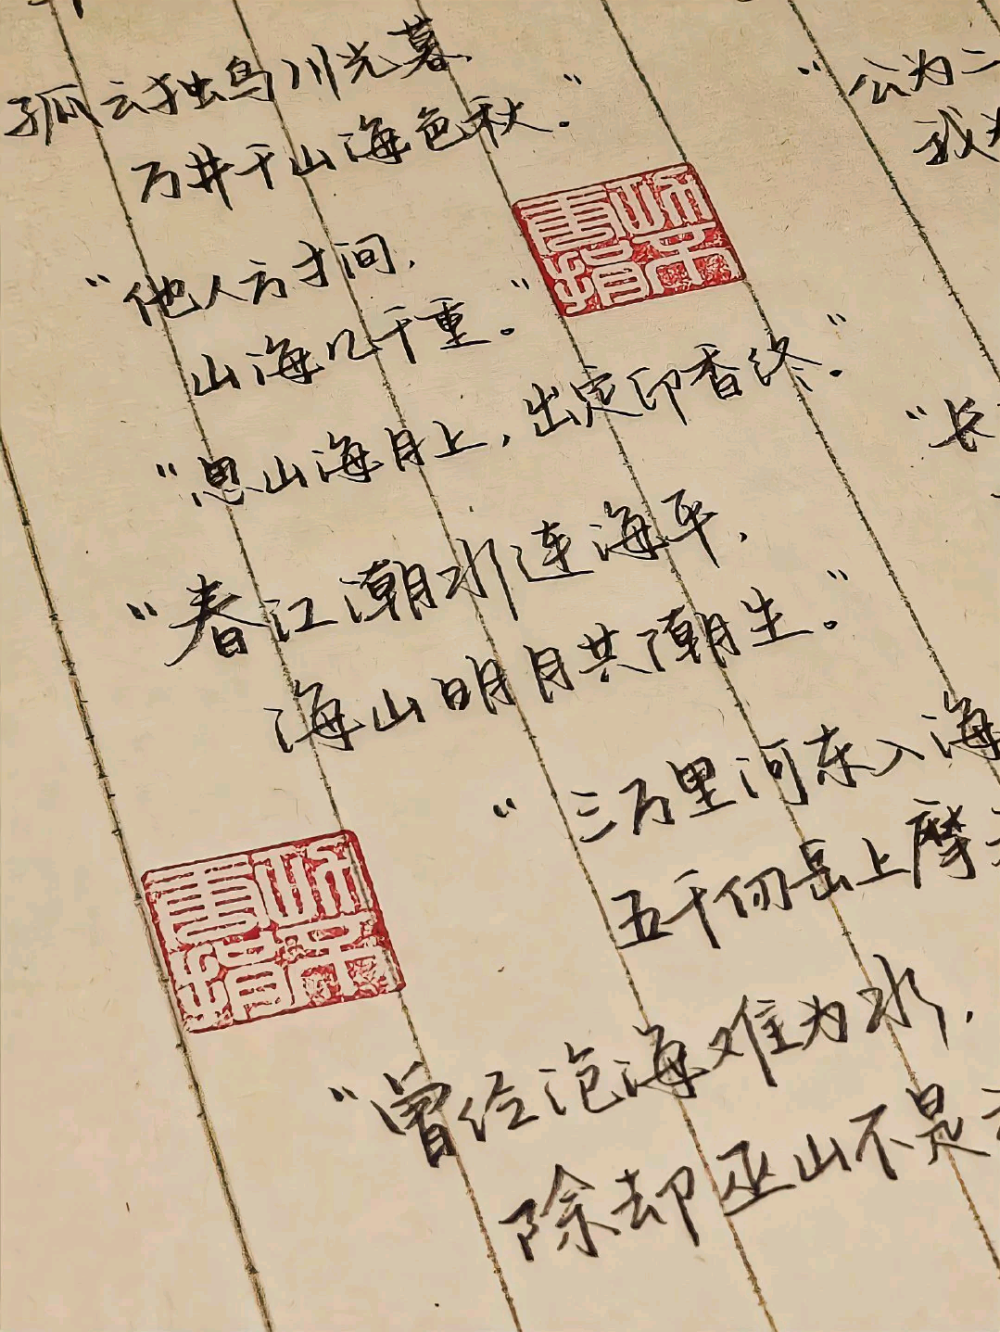 孤云独鸟川光暮,
万井千山海色秋。”
“他人方寸间,
山海几千重。”
“思山海月上,出定印香终。”
“春江潮水连海平,
海山明月共潮生。”
“三万里河东入海
五千仞岳上摩
“曾经沧海难为水,
除却巫山不是
“公为二
我为
“长